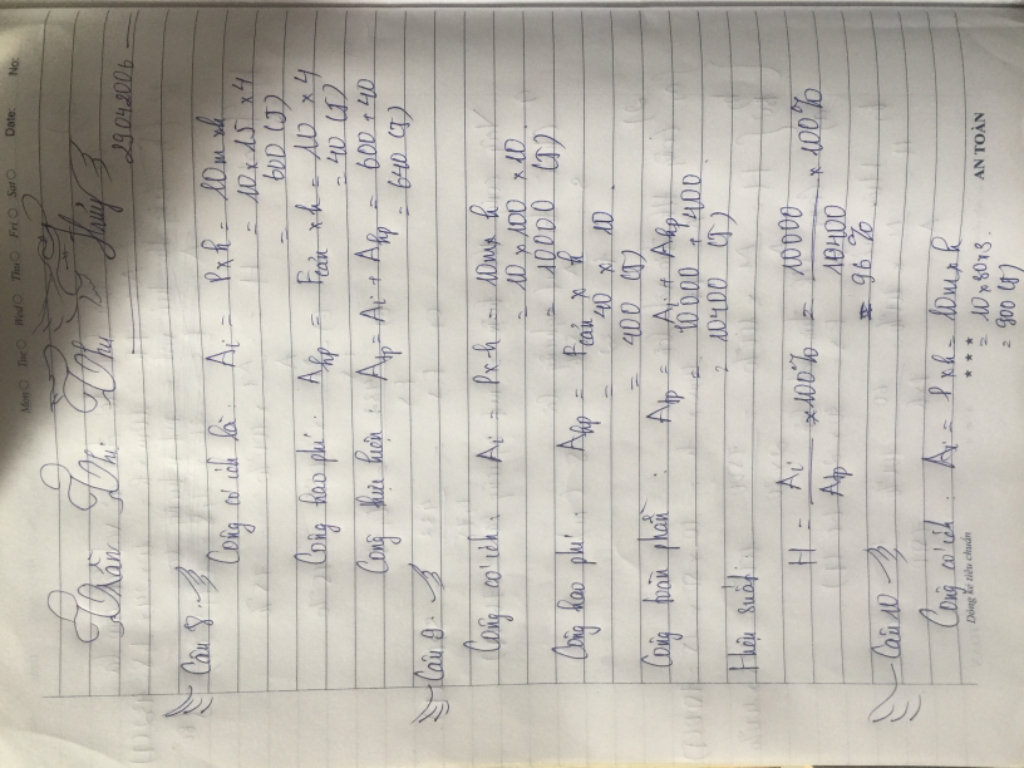 No: Date: Mon Tue Wed Thu Fri Sat
Trần Thị Thi Thi Thuỷ
29042006
Câu 8.
Công có ích là Ai = P x h = 10m xh
= 10 x 15 x 4
= 600 (J)
Công hao phí: Ahp = Fcản x h = 10 x 4
= 40 (J)
Công thực hiện: Ap = Ai + Ahp = 600 + 40
= 640 (J)
Câu 9.
Công có ích: Ai = P x h = 10m x h
= 10 x 100 x 10
= 10000 (J)
Công hao phí Ahp = Fcản x h
= 40 x 10
= 400 (J)
Công toàn phần: Atp = Ai + Ahp
= 10000 + 400
= 10400 (J)
Hiệu suất:
H = Ai / Atp x 100% = 10000 / 10400 x 100%
= 96 %
Câu 10
Công có ích: Ai = P x h = 10m x h
= 10 x 30 x 3.
= 900 (J)
Dòng kẻ tiêu chuẩn ★ ★ ★ AN TOÀN